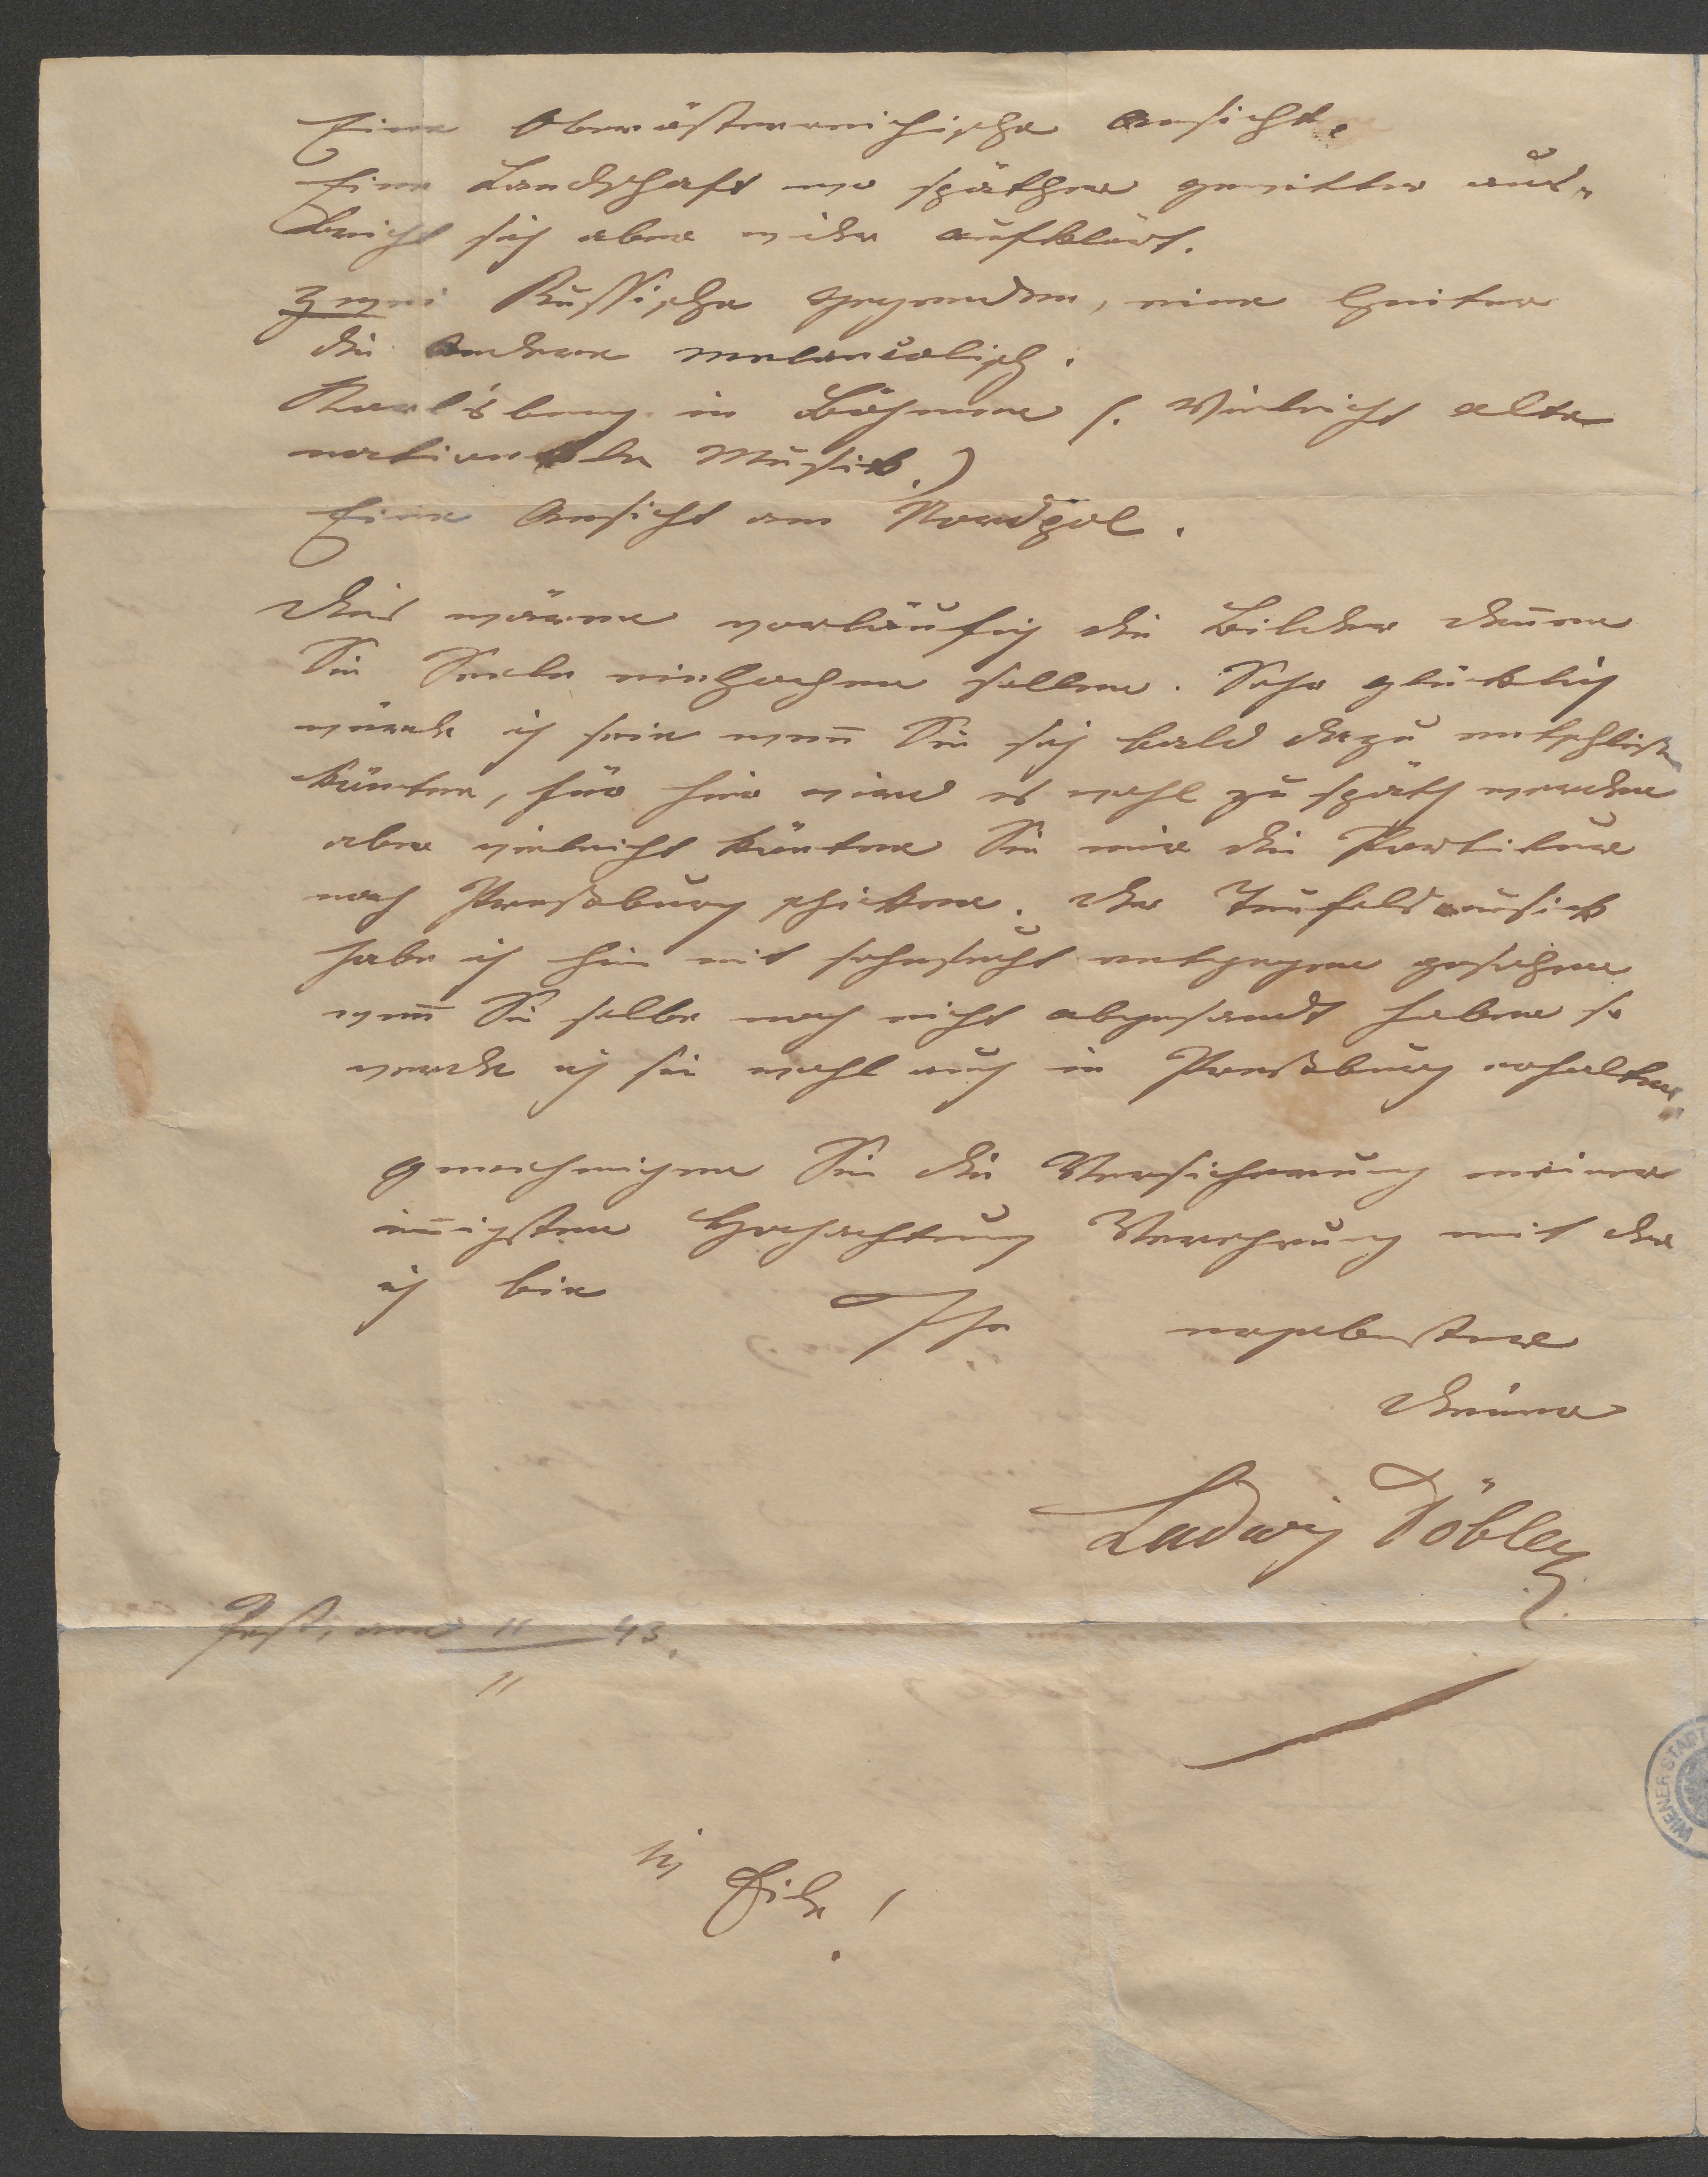 Eine Oberösterreichische Ansicht.
Eine Landschaft wo späther gewitter aus-
bricht sich aber wider aufklärt.
Zwei Russische Gegenden, eine heiter
die Andere melancolisch.
Karlsberg in Böhmen (. Vieleicht alte
nationelle Musik.)
Eine Ansicht am Nordpol.
Dies wären vorläufig die Bilder denen
Sie Seele einhachen sollen. Sehr glücklich
würde ich sein wenn Sie sich bald dazu entschließen
könten, für hier wird es wohl zu späth werden
aber vieleicht könten Sie mir die Partituren
nach Pressburg schicken. Der Teufelsmusick
habe ich hier mit sehnsucht entgegen gesehen
wenn Sie selbe noch nicht abgesandt haben so
werde ich sie wohl auch in Pressburg erhalten.
Gemehmigen Sie die Versicherung meiner
innigsten Hochachtung Verehrung mit der
ich bin Ihr ergebenster
Diener
Ludwig Döbler
Pest, am 11/11 43.
in Eile!
WIENER STADT